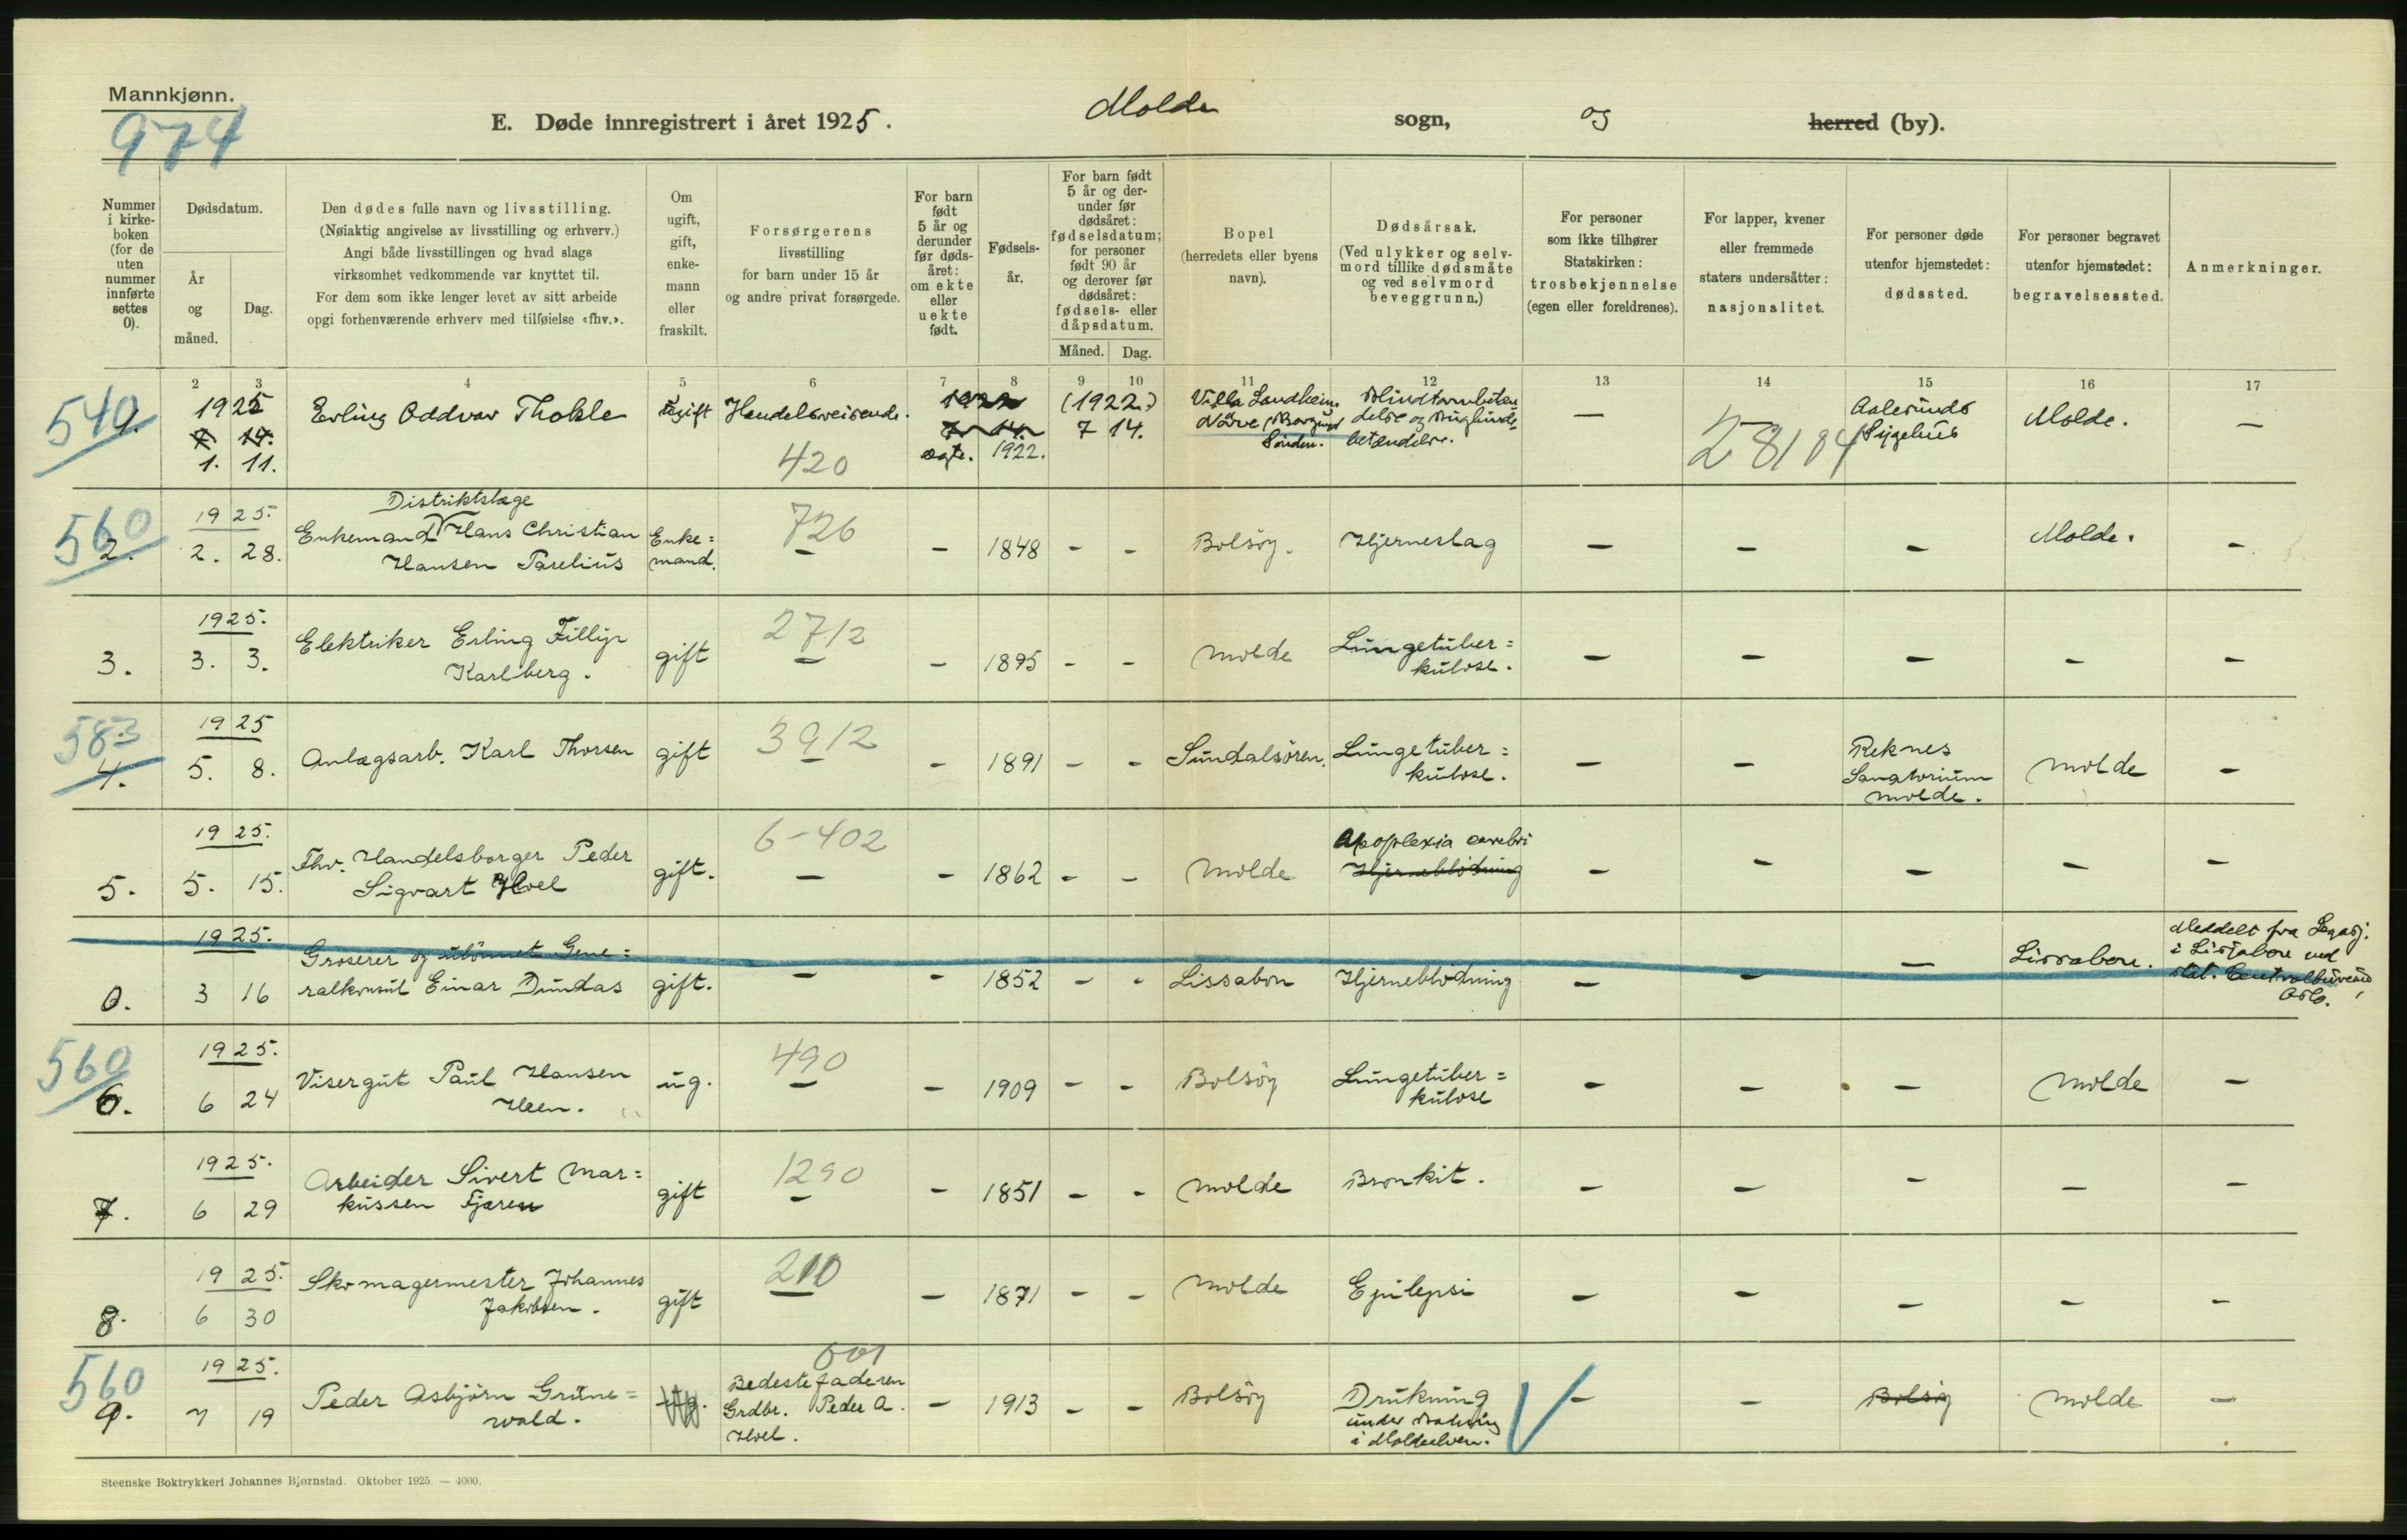 Mannkjønn.
974
E. Døde innregistrert i året 1925. Molde sogn, og herred (by).
Nummer i kirke-boken (for de uten nummer innførte settes 0).
Dødsdatum.
År og måned.
Dag.
Den dødes fulle navn og livsstilling.
(Nøiaktig angivelse av livsstilling og erhverv.)
Angi både livsstillingen og hvad slags
virksomhet vedkommende var knyttet til.
For dem som ikke lenger levet av sitt arbeide
opgi forhenværende erhverv med tilføielse «fhv.».
Om ugift, gift, enke-mann eller fraskilt.
Forsørgerens
livsstilling
for barn under 15 år
og andre privat forsørgede.
For barn født 5 år og derunder før døds-året: om ekte eller uekte født.
Fødsels-år.
For barn født 5 år og der-under før dødsåret: fødselsdatum; for personer født 90 år og derover før dødsåret: fødsels- eller dåpsdatum.
Måned. Dag.
Bopel
(herredets eller byens
navn).
Dødsårsak.
(Ved ulykker og selv-
mord tillike dødsmåte
og ved selvmord
beveggrunn.)
For personer
som ikke tilhører
Statskirken:
trosbekjennelse
(egen eller foreldrenes).
For lapper, kvener
eller fremmede
staters undersåtter:
nasjonalitet.
For personer døde
utenfor hjemstedet:
dødssted.
For personer begravet
utenfor hjemstedet:
begravelsessted.
Anmerkninger.
2 3 4 5 6 7 8 9 10 11 12 13 14 15 16 17
540
1925 Erling Oddvar Thokle ugift Handelsreisende. 1922 (1922.) Villa Landheim Blindtarmbeten
7 14. 7 14. 7 14. Nörve, Borgund delse og Bughinde-
1. 11. 420 ægte. 1922. Sönden. betændelse. — 28184 Aalesunds Sygehus Molde. —
560
2. 1925. 2. 28. Distriktslæge
Enkemand Hans Christian
Hansen Parelius Enke=
mand. 726 – – 1848 – – Bolsöy. Hjerneslag – – – Molde. –
3. 1925. 3. 3. Elektriker Erling Fillip
Karlberg. gift 2712 – – 1895 – – Molde Lungetuber=
kulose. – – – – –
583
4. 1925 5. 8. Anlægsarb. Karl Thorsen gift 3912 – – 1891 – – Sundalsören. Lungetuber=
kulose. – – Reknes
Sanatorium
Molde. Molde –
5. 1925. 5. 15. Fhv. Handelsborger Peder
Sigvart Hoel gift. 6-402 – – 1862 – – Molde Apoplexia cerebri
Hjerneblödning – – – – –
0. 1925. 3 16 Groserer og ulönnet Gene=
ralkonsul Einar Dundas gift. – – 1852 – – Lissabon Hjerneblödning – – – Lissabon. Meddelt fra Legasj.
i Lissabon ved
stat. Centralbureau
Oslo.
560
6. 1925. 6 24 Visergut Paul Hansen
Heen. ug. 490 – – 1909 – – Bolsöy Lungetuber=
kulose – – – Molde –
7. 1925. 6 29 Arbeider Sivert Mar=
kussen Fjæren gift 1290 – – 1851 – – Molde Bronkit. – – – – –
8. 1925. 6 30 Skomagermester Johannes
Jakobsen. gift 210 – – 1871 – – Molde Epilepsi – – – – –
560
9. 1925. 7 19 Peder Asbjörn Grüne=
wald. Ug. 601
Bedstefaderen
Grdbr. Peder A.
Hoel. – 1913 – – Bolsöy Drukning
under Badning
i Moldeelven. – – Bolsöy Molde –
Steenske Boktrykkeri Johannes Bjørnstad. Oktober 1925. — 4000.